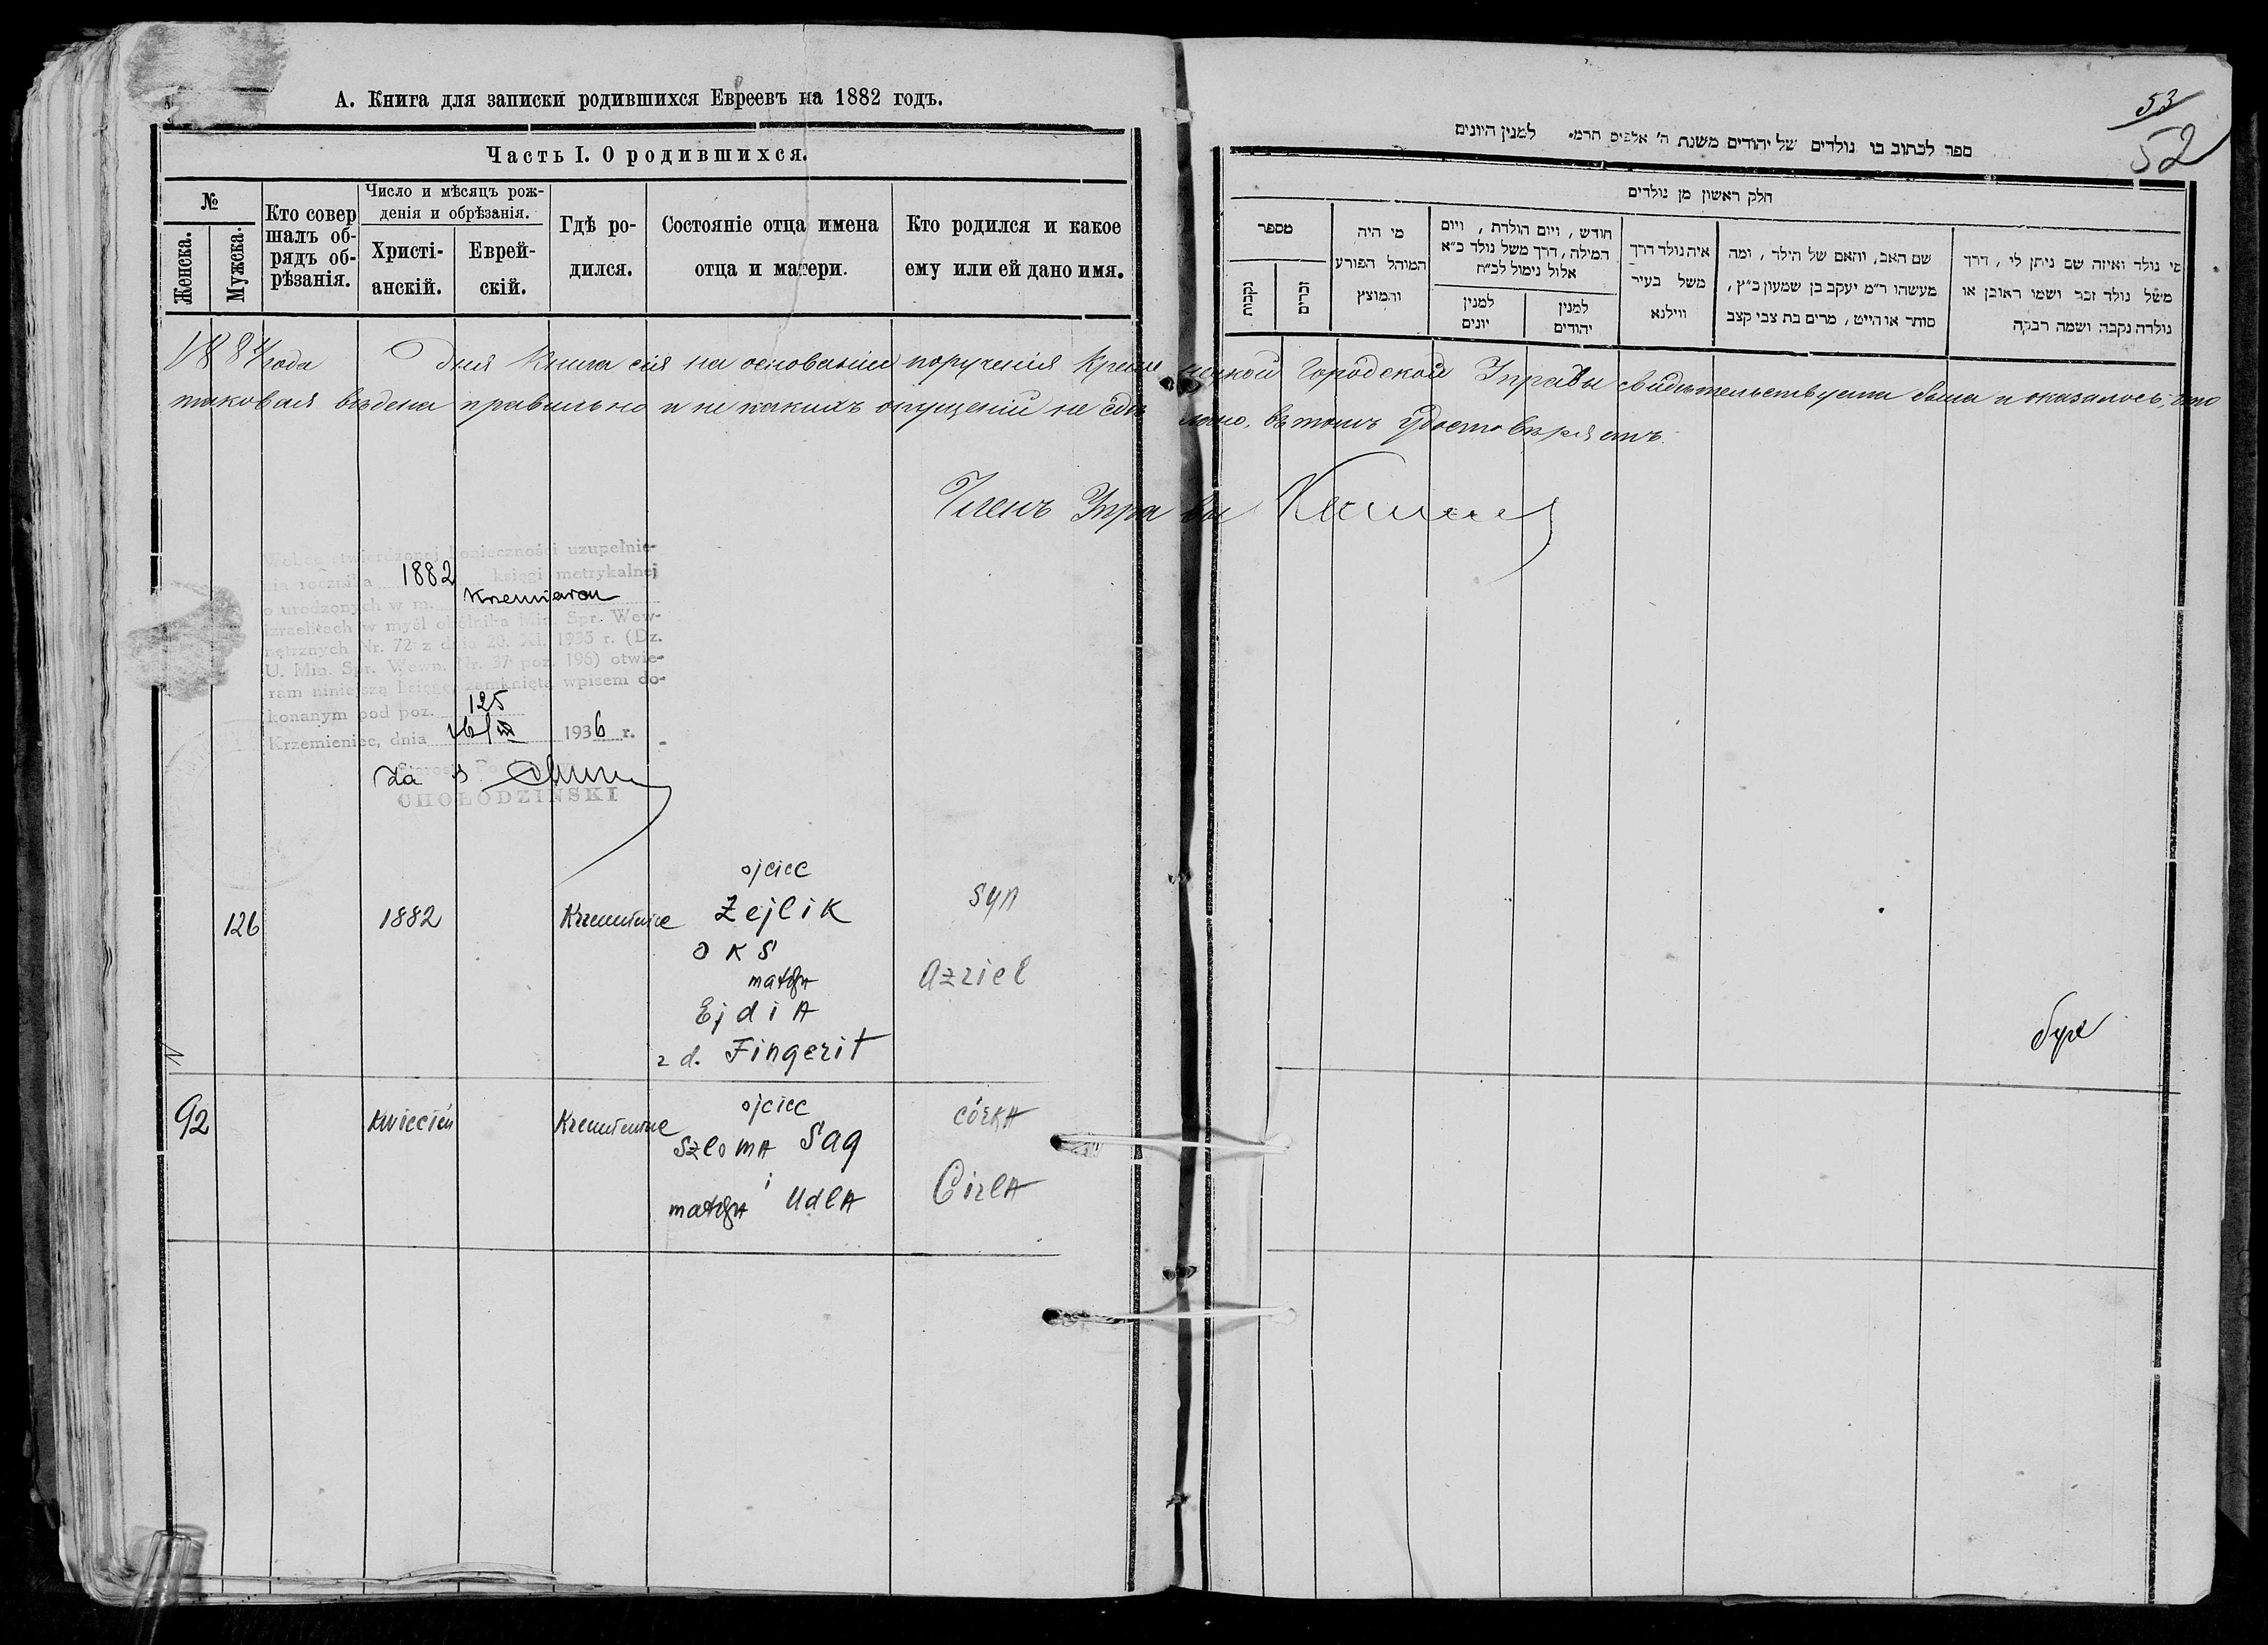 А. Книга для записки родившихся Евреевъ на 1882 годъ.
Часть I. О родившихся.
№
Женска.
Мужска.
Кто совер
шалъ об-
рядъ об-
рѣзанія.
Число и мѣсяцъ рож-
денія и обрѣзанія.
Христі-
анскій.
Еврей-
скій.
Гдѣ ро-
дился.
Состояніе отца имена
отца и матери.
Кто родился и какое
ему или ей дано имя.
53
52
ספר לכתוב בו נולדים של יהודים משנת ה' אלפים תרמ" למנין היונים
חלק ראשון מן נולדים
מספר
נקבות
זכרים
מי היה
המוהל הפורע
והמוצץ
חודש, ויום הולדת, ויום
המילה, דרך משל נולד כ"א
אלול נימול לכ"ח
למנין
יונים
למנין
יהודים
איה נולד דרך
משל בעיר
ווילנא
שם האב, והאם של הילד, ומה
מעשהו ר"מ יעקב בן שמעון כ"ץ,
סוחר או הייט, מרים בת צבי קצב
מי נולד ואיזה שם ניתן לו, דרך
משל נולד זכר ושמו ראובן או
נולדה נקבה ושמה רבקה
года дня Книга сія на основаніи порученія Кременецкой Городской Управы свидѣтельствуема была и оказалось, что
таковая ведена правильно и никакихъ опущеній не сдѣлано, въ томъ удостовѣряетъ.
Членъ Управы
Wobec stwierdzonej konieczności uzupełnie-
nia rocznika 1882 księgi metrykalnej
o urodzonych w m.
izraelitach w myśl okólnika Min. Spr. Wew-
nętrznych Nr. 72 z dnia 20. XI. 1935 r. (Dz.
U. Min. Spr. Wewn. Nr. 37 poz. 196) otwie-
ram niniejszą księgę, zamkniętą wpisem do-
konanym pod poz. 125
Krzemieniec, dnia 1936 r.
Za
CHOŁODZIŃSKI
126
1882
ojciec
Zejlik
OKS
matka
Ejdia
z d. Fingerit
syn
Azriel
92
Kwiecień
ojciec
Szloma Sag
i
matka Udla
córka
Cirla